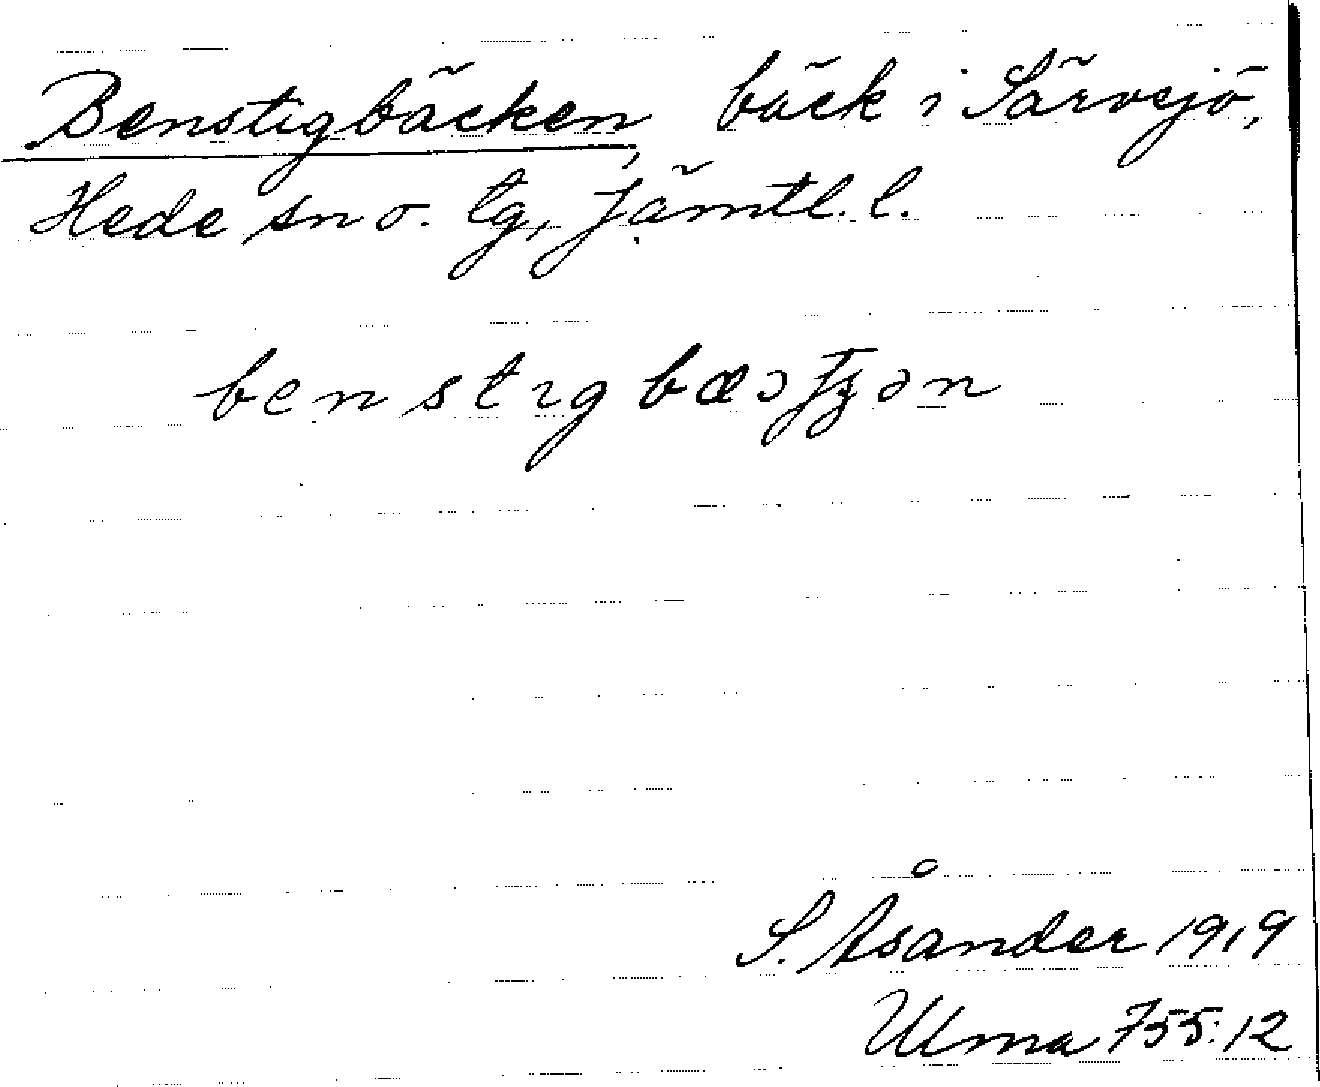 Benstigbäcken, bäck i Särvsjö,
Hede sn o. tg, Jämtl. l.
S. Åsander 1919
Ulma 755:12